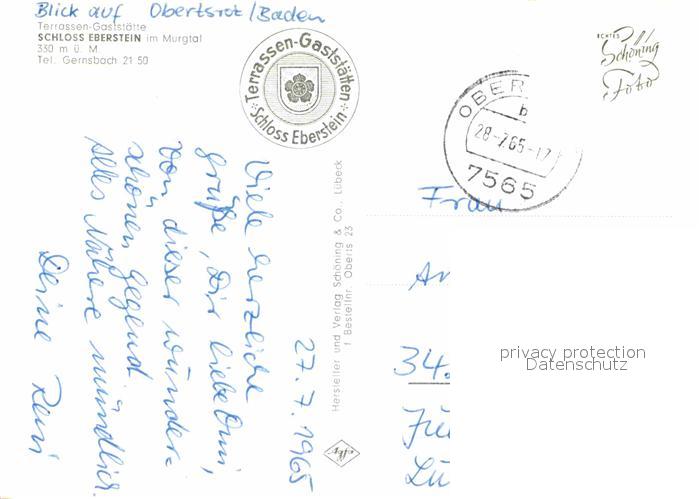 Blick auf Obertsrot/Baden
Terrassen-Gaststätte
SCHLOSS EBERSTEIN im Murgtal
330 m ü. M.
Tel. Gernsbach 21 50
Terrassen-Gaststätten
Schloss Eberstein
ECHTES
Schöning
Foto
OBER
b
28-7.65-17
7565
27.7.1965
Viele herzliche
Grüße, Dir liebe Omi,
von dieser wunder-
schönen Gegend
Alles Nähere mündlich.
Deine Reni
Hersteller und Verlag Schöning & Co., Lübeck
1 Bestellnr. Oberts 23
Agfa
Frau
34.
privacy protection
Datenschutz